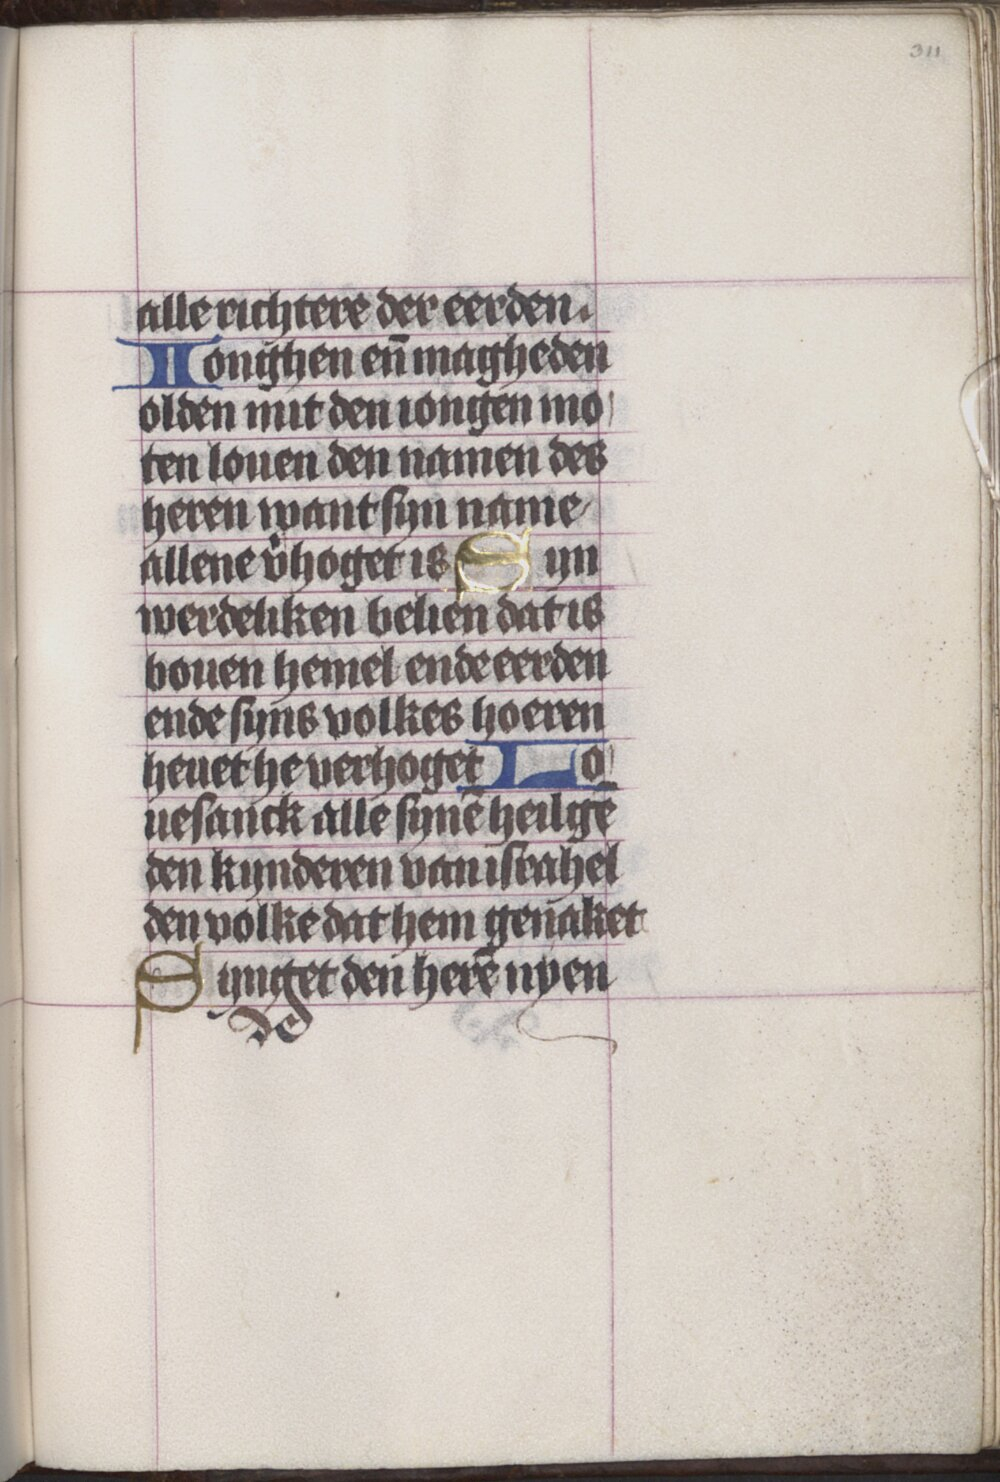 311
alle richtere der eerden.
Ionghen en̄ magheden
olden mit den iongen mo
ten louen den namen des
heren want syn name
allene v̓hoget is Syn
werdeliken belien dat is
bouen hemel ende eerden
ende syns volkes hoeren
heuet he verhoget Lo
uesanck alle synē heilgē
den kynderen van israhel
den volke dat hem genaket
Synget den herē nyen